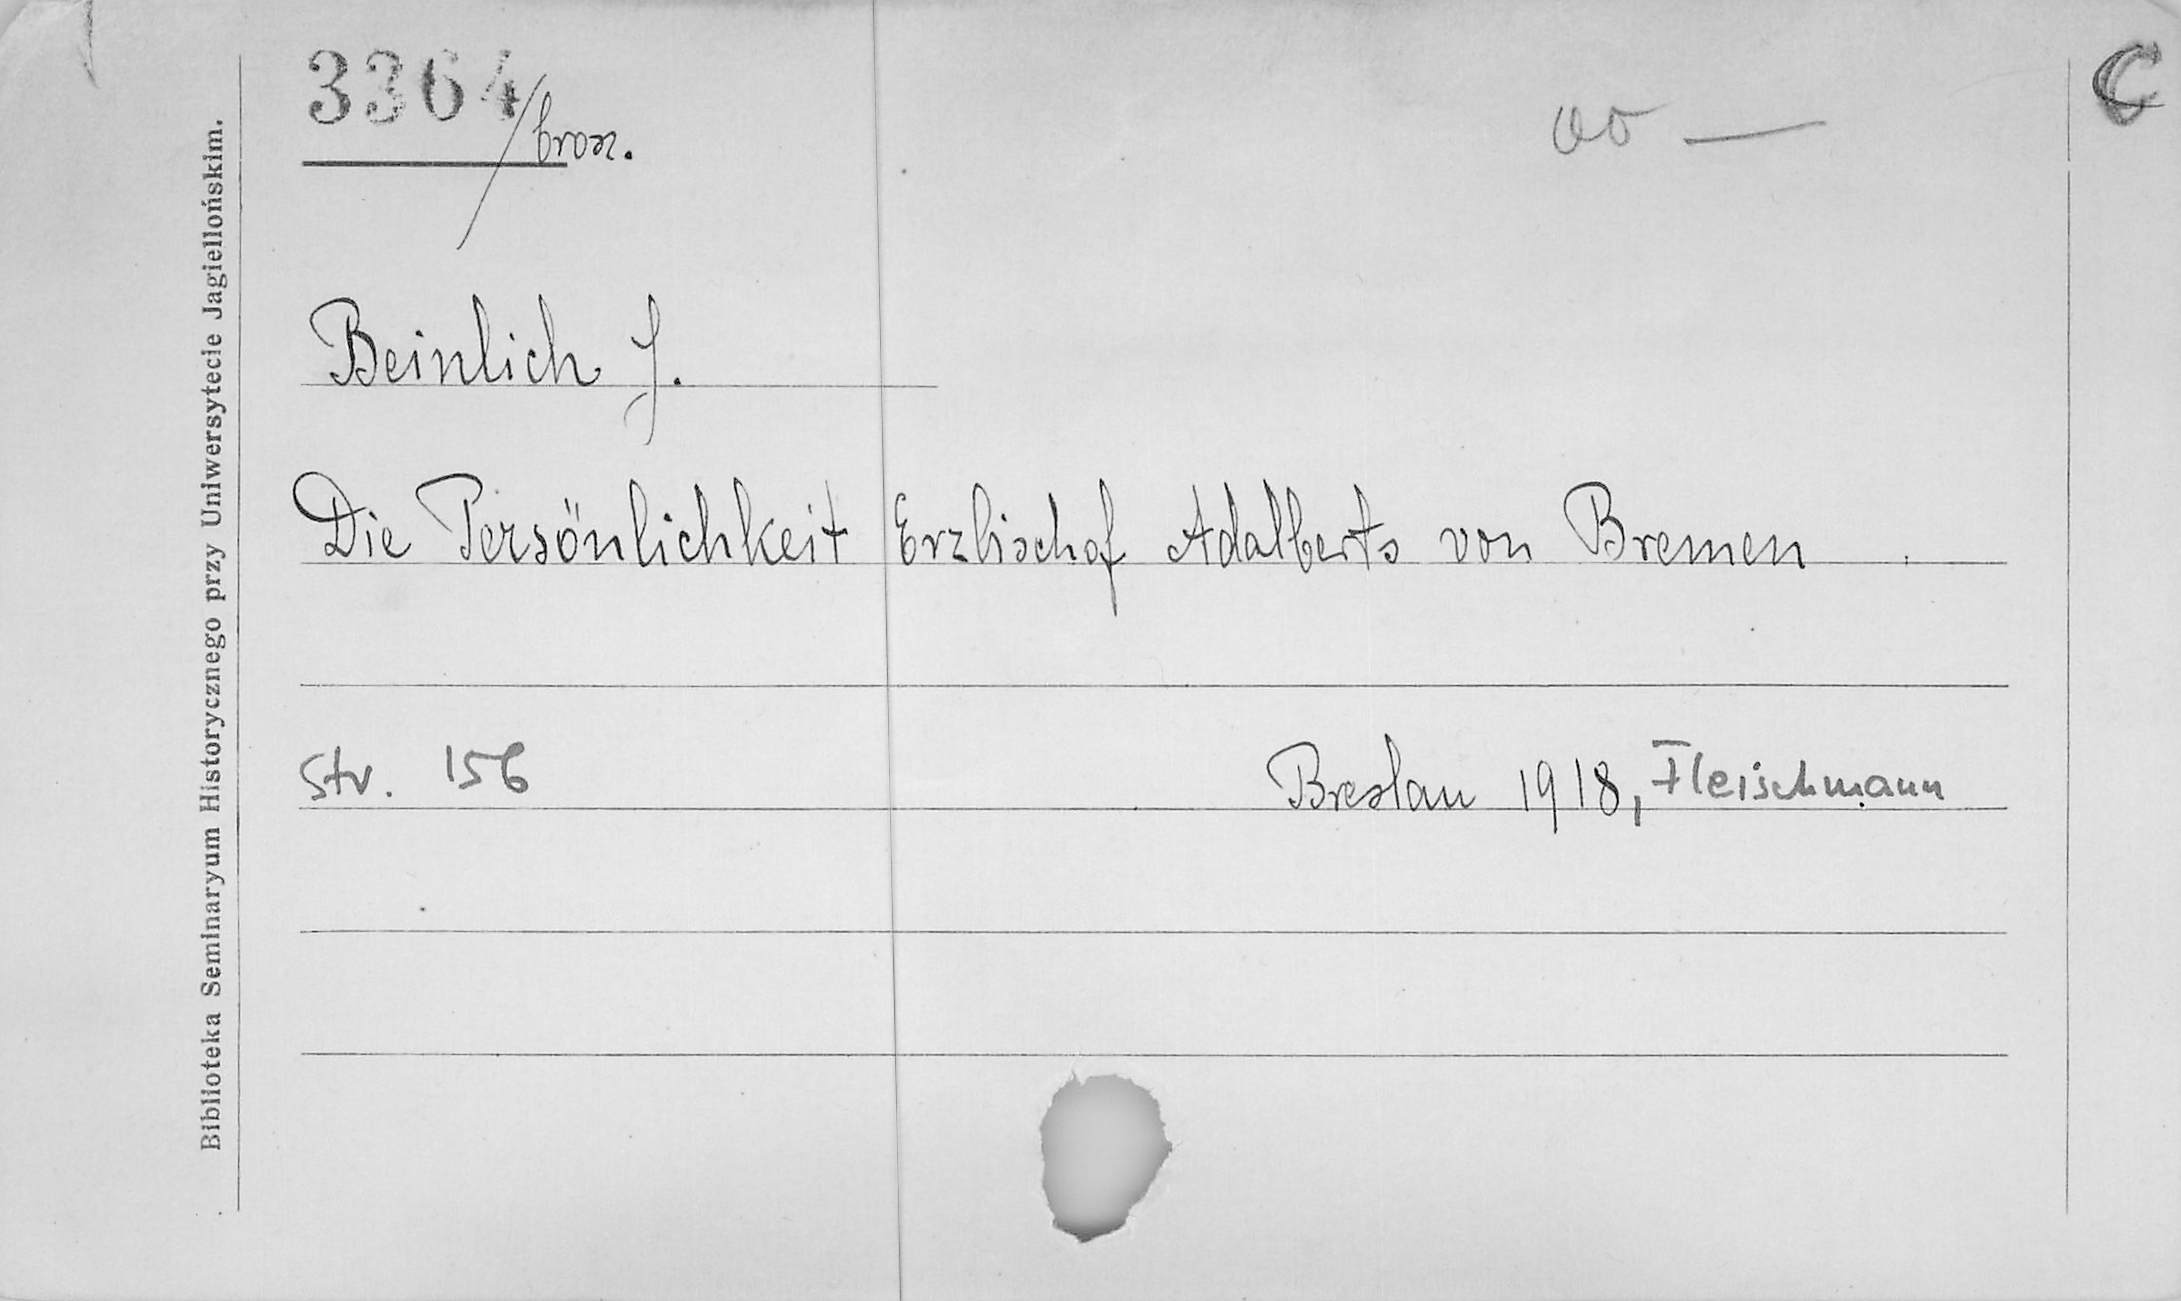 3364/brosz.
C
Beinlich J.
Die Persönlichkeit Erzbischof Adalberts von Bremen
str. 156
Breslau 1918, Fleischmann
Biblioteka Seminaryum Historycznego przy Uniwersytecie Jagiellońskim.